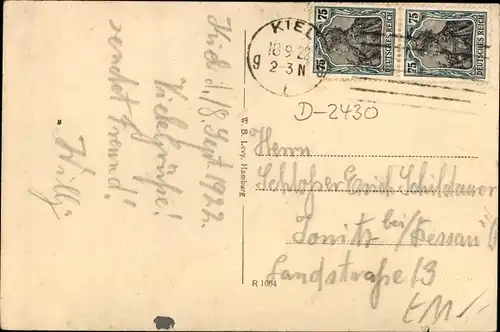 KIEL
18.9.22
2-3 N
g
75 75
DEUTSCHES REICH
75 75
DEUTSCHES REICH
D-2430
Kiel d. 18. Sept. 1922.
Viele Grüße!
sendet Freund!
Willy
W. B. Levy, Hamburg
R 1664
Herrn
Schlosser Erich Schildauer
Jonitz bei/Dessau
Landstraße 13